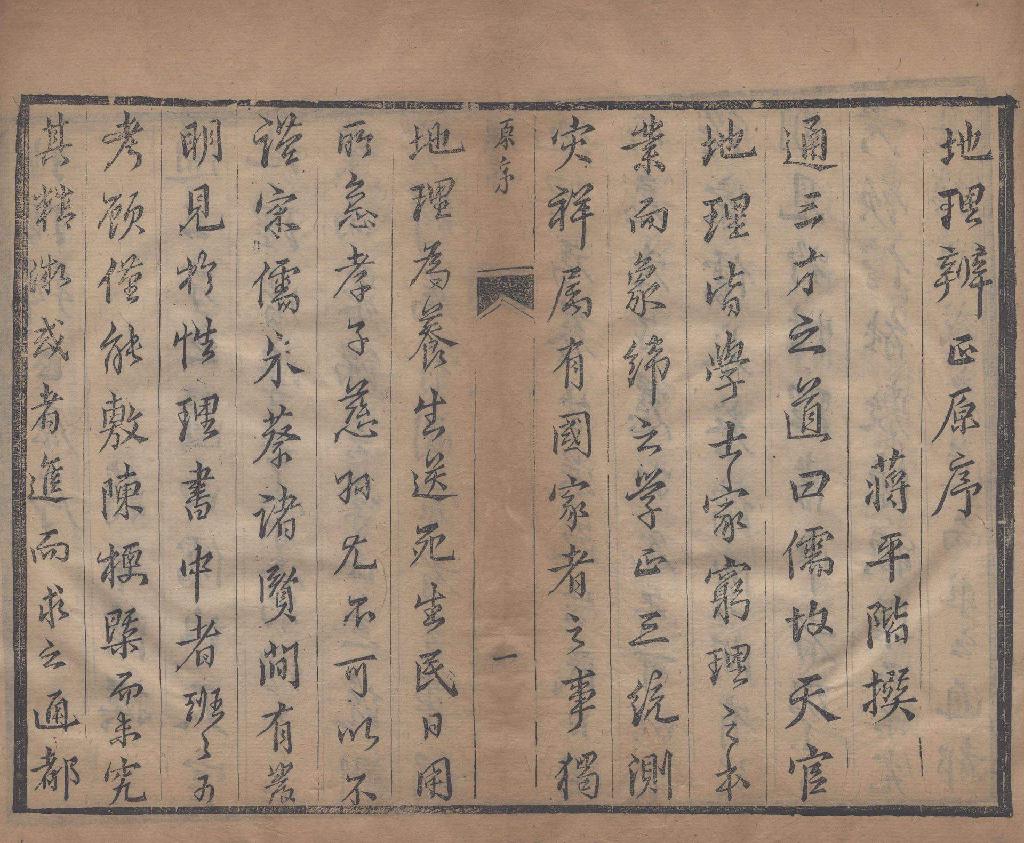 地理辨正原序
蔣平階撰
通三才之道曰儒故天官
地理皆學士家窮理之本
業而象緯之学正三統測
灾祥属有國家者之事獨
原序
一
地理為養生送死生民日用
所急孝子慈孫尤不可以不
謹宋儒朱蔡諸賢間有發
明見於性理書中者班〻可
考顧僅能敷陳梗槩而未究
其精微或者進而求之通都